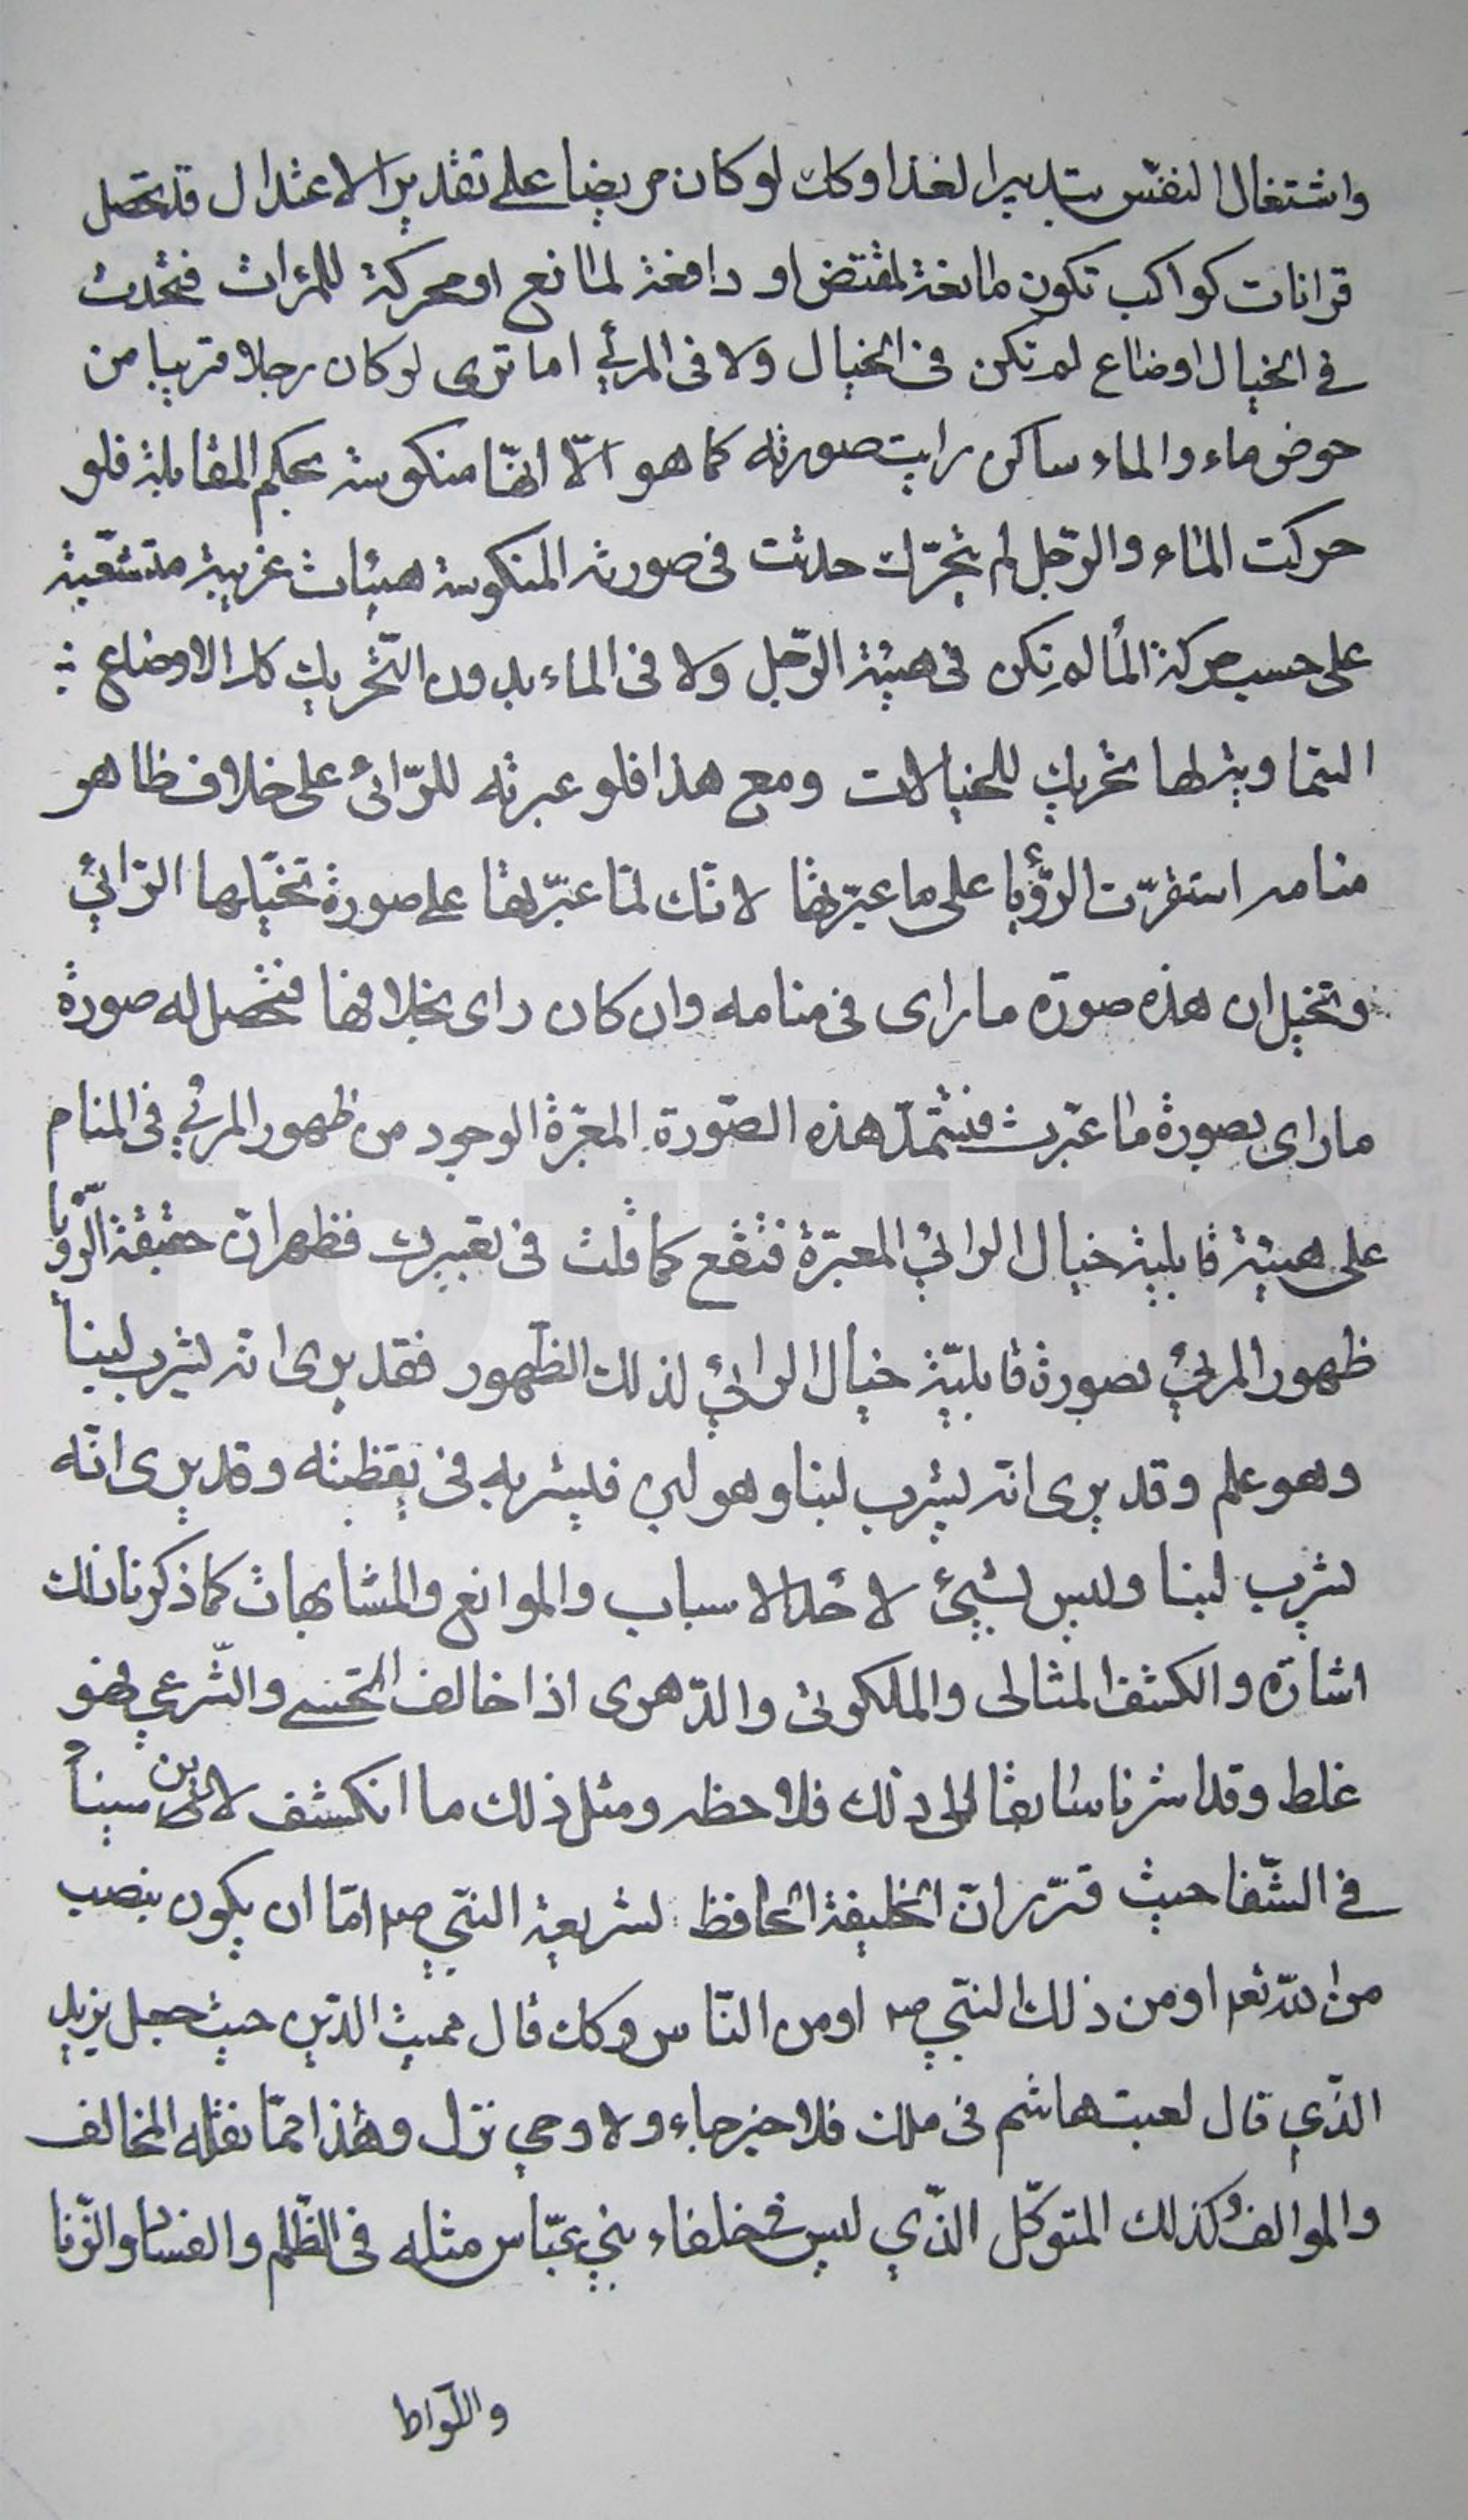 واشتغال النفس بتدبير الغذا وكك لو كان مريضا على تقدير الاعتدال قد تحصل
قرانات كواكب تكون مانعة لمقتض او دافعة لمانع او محركة للمرات فتحدث
في الخيال اوضاع لم تكن في الخيال ولا في المرئي اما ترى لو كان رجلا قريبا من
حوض ماء والماء ساكن رايت صورته كما هو الّا انّها منكوسة بحكم المقابلة فلو
حركت الماء والرّجل لم يتحرّك حدثت في صورته المنكوسة هيئات غريبة متشعّبة
على حسب حركة الماء لم تكن في هيئة الرّجل ولا في الماء بدون التّحريك كذا الاوضاع
السماوية لها تحريك للخيالات ومع هذا فلو عبرته للرّائي على خلاف ظاهر
منامه استقرّت الرّؤيا على ما عبّرتها لانّك لمّا عبّرتها على صورة تخيّلها الرّائي
وتخيل ان هذه صورة ما راى في منامه وان كان راى بخلافها فتحصل له صورة
ما راى بصورة ما عبّرت فتستمدّ هذه الصّورة المعبّرة الوجود من ظهور المرئي في المنام
على هيئة قابلية خيال الرائي المعبّرة فتقع كما قلت في تعبيرك فظهر انّ حقيقة الرّؤيا
ظهور المرئي بصورة قابليّة خيال الرائي لذلك الظّهور فقد يرى انّه يشرب لبناً
وهو علم وقد يرى انّه يشرب لبنا وهو لبن فيشربه في يقظته وقد يرى انّه
يشرب لبنا وليس بشيئ لاحد الاسباب والموانع والمشابهات كما ذكرنا ذلك
اشارة والكشف المثالى والملكوتى والدّهرى اذا خالف الحسى والشّرعى فهو
غلط وقد اشرنا سابقا الى ذلك فلاحظه ومثل ذلك ما انكشف لابن سيناً
في الشّفا حيث قرّر انّ الخليفة الحافظ لشريعة النّبي صم امّا ان يكون بنصب
من اللّه تعم او من ذلك النّبي صم او من النّاس وكك قال مميت الدّين حيث جعل يزيد
الذّي قال لعبت هاشم في ملك فلا خبر جاء ولا وحي نزل وهذا ممّا نقله المخالف
والموالف وكذلك المتوكّل الذّي ليس في خلفاء بني عبّاس مثله في الظّلم والفساد والزّنا
واللّواط